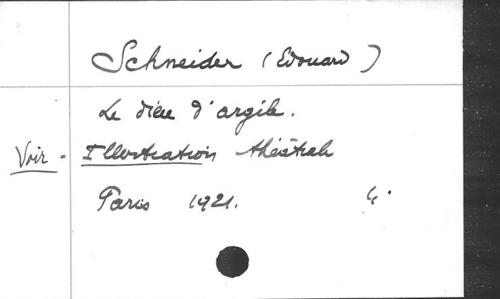 Schneider (Edouard)
Le dieu d'argile.
Voir - Illustration théâtrale
Paris 1921. 4°